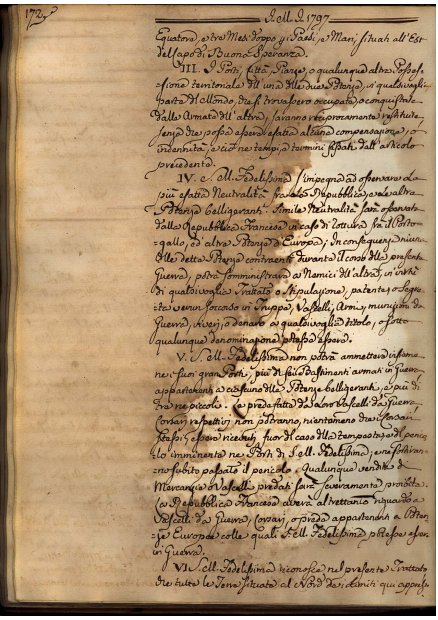 172
I. M. I. 1797
Equatore, e tre Mesi doppo pei Paesi, e Mari situati all'Est
del Capo di Buona Speranza.
III. I Porti, Città, Piazze, o qualunque altra Posses-
sione territoriale dell'una delle due Potenze, in qualsivoglia
parte del Mondo, che si trovassero occupate, o conquistate
dalle Armate dell'altra, saranno reciprocamente restituite,
senza che possa essere esatta alcuna compensazione, o
indennità, e ciò ne tempi, e termini fissati dall'articolo
precedente.
IV. S. M. Fedelissima s'impegna ad osservare la
più esatta Neutralità fra la Repubblica, e le altre
Potenze belligeranti. Simile Neutralità sarà osservata
dalla Repubblica Francese in caso di rottura fra il Porto-
gallo, ed altra Potenza d'Europa; In conseguenza niuna
delle dette Potenze contraenti durante il corso della presente
Guerra, potrà somministrare a Nemici dell'altra, in virtù
di qualsivoglia Trattato o Stipulazione, patente, o segre-
ta verun soccorso in Truppa, Vascelli, Armi, munizioni da
Guerra, Viveri, o denaro a qualsivoglia titolo, o sotto
qualunque denominazione potesse essere.
V. S. M. Fedelissima non potrà ammettere insieme
ne suoi gran Porti, più di sei Bastimenti armati in Guerra
appartenenti a ciascuna delle Potenze belligeranti, e più di
tre ne piccoli. Le prede fatte da loro Vascelli da Guerra
Corsari respettivi non potranno, nientemeno che i Corsari
stessi, essere ricevuti, fuor di caso della tempesta, o di perico-
lo imminente ne Porti di S. M. Fedelissima; e ne sortiran-
no subito passato il pericolo. Qualunque vendita di
Mercanzie o Vascelli predati sarà severamente proibita.
La Repubblica Francese userà altrettanto riguardo a
Vascelli da Guerra, Corsari, o prede appartenenti a Poten-
ze Europee colle quali S. M. Fedelissima potesse essere
in Guerra.
VI. S. M. Fedelissima riconosce nel presente Trattato
che tutte le Terre situate al Nord de i limiti qui appresso